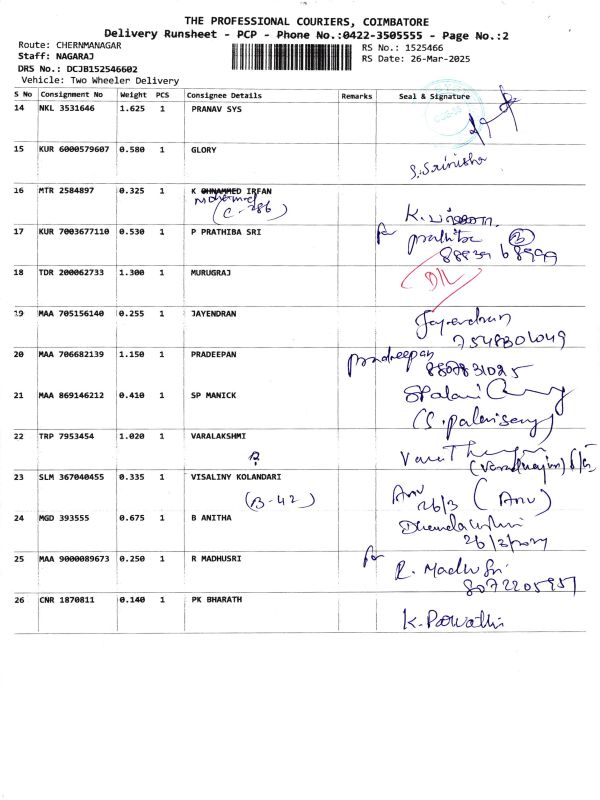 THE PROFESSIONAL COURIERS, COIMBATORE
Delivery Runsheet - PCP - Phone No.:0422-3505555 - Page No.:2
Route: CHERNMANAGAR
RS No.: 1525466
Staff: NAGARAJ
RS Date: 26-Mar-2025
DRS No.: DCJB152546602
Vehicle: Two Wheeler Delivery
S No Consignment No Weight PCS Consignee Details Remarks Seal & Signature
14 NKL 3531646 1.625 1 PRANAV SYS
15 KUR 6000579607 0.580 1 GLORY
S. Srinisha
16 MTR 2584897 0.325 1 K OHNAMMED IRFAN
Mohammed
(C-286)
K.
17 KUR 7003677110 0.530 1 P PRATHIBA SRI
for prathiba
18 TDR 200062733 1.300 1 MURUGRAJ
D/L
19 MAA 705156140 0.255 1 JAYENDRAN
Jayendran
20 MAA 706682139 1.150 1 PRADEEPAN
pradeepan
21 MAA 869146212 0.410 1 SP MANICK
SPalani
(S. palanisamy)
22 TRP 7953454 1.020 1 VARALAKSHMI
23 SLM 367040455 0.335 1 VISALINY KOLANDARI
(B-42)
Anu
26/3 (Anu)
24 MGD 393555 0.675 1 B ANITHA
25 MAA 9000089673 0.250 1 R MADHUSRI
for R. Madhu Sri
8072205957
26 CNR 1870811 0.140 1 PK BHARATH
K. Parvathi